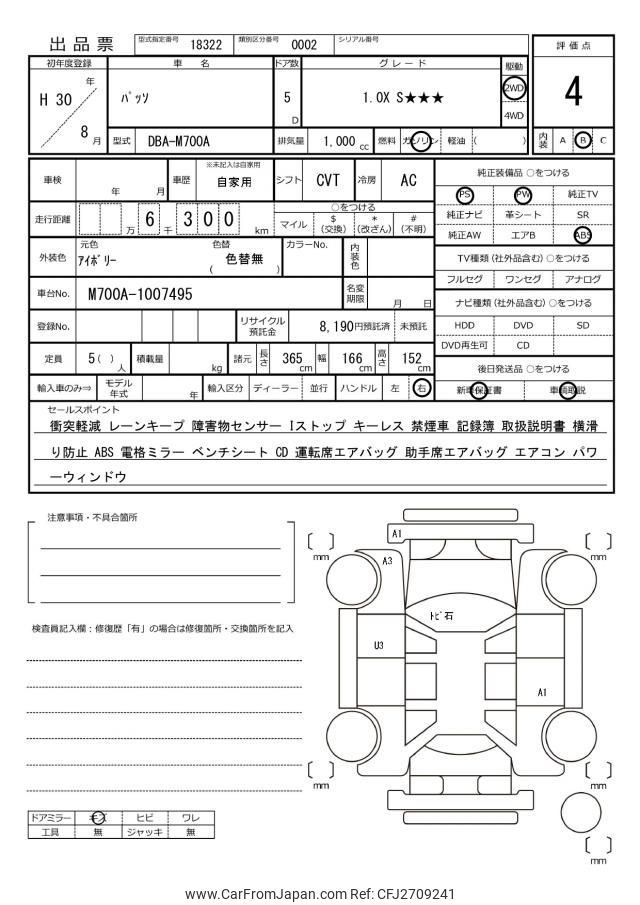 出品票 型式指定番号 18322 類別区分番号 0002 シリアル番号
評価点
4
初年度登録 車名 ドア数 グレード 駆動
H 30 年 8 月 パッソ 5 D 1.0X S★★★ 2WD 4WD
型式 DBA-M700A 排気量 1,000 cc 燃料 ガソリン 軽油 ( ) 内装 A B C
車検 年 月 車歴 ※未記入は自家用 自家用 シフト CVT 冷房 AC
純正装備品 ○をつける
PS PW 純正TV
純正ナビ 革シート SR
純正AW エアB ABS
走行距離 万 6 千 3 0 0 km
○をつける
マイル $ (交換) * (改ざん) # (不明)
外装色 元色 アイボリー 色替 ( 色替無 ) カラーNo. 内装色
TV種類 (社外品含む) ○をつける
フルセグ ワンセグ アナログ
車台No. M700A-1007495 名変期限 月 日
ナビ種類 (社外品含む) ○をつける
登録No. リサイクル預託金 8,190円預託済 未預託
HDD DVD SD
DVD再生可 CD
定員 5 ( ) 人 積載量 kg 諸元 長さ 365 cm 幅 166 cm 高さ 152 cm
後日発送品 ○をつける
輸入車のみ⇒ モデル年式 年 輸入区分 ディーラー 並行 ハンドル 左 右
新車保証書 車輌取説
セールスポイント
衝突軽減 レーンキープ 障害物センサー Iストップ キーレス 禁煙車 記録簿 取扱説明書 横滑
り防止 ABS 電格ミラー ベンチシート CD 運転席エアバッグ 助手席エアバッグ エアコン パワ
ーウィンドウ
注意事項・不具合箇所
検査員記入欄：修復歴「有」の場合は修復箇所・交換箇所を記入
A1
A3
トビ石
U3
A1
mm
mm
mm
mm
mm
ドアミラー キズ ヒビ ワレ
工具 無 ジャッキ 無
www.CarFromJapan.com Ref: CFJ2709241